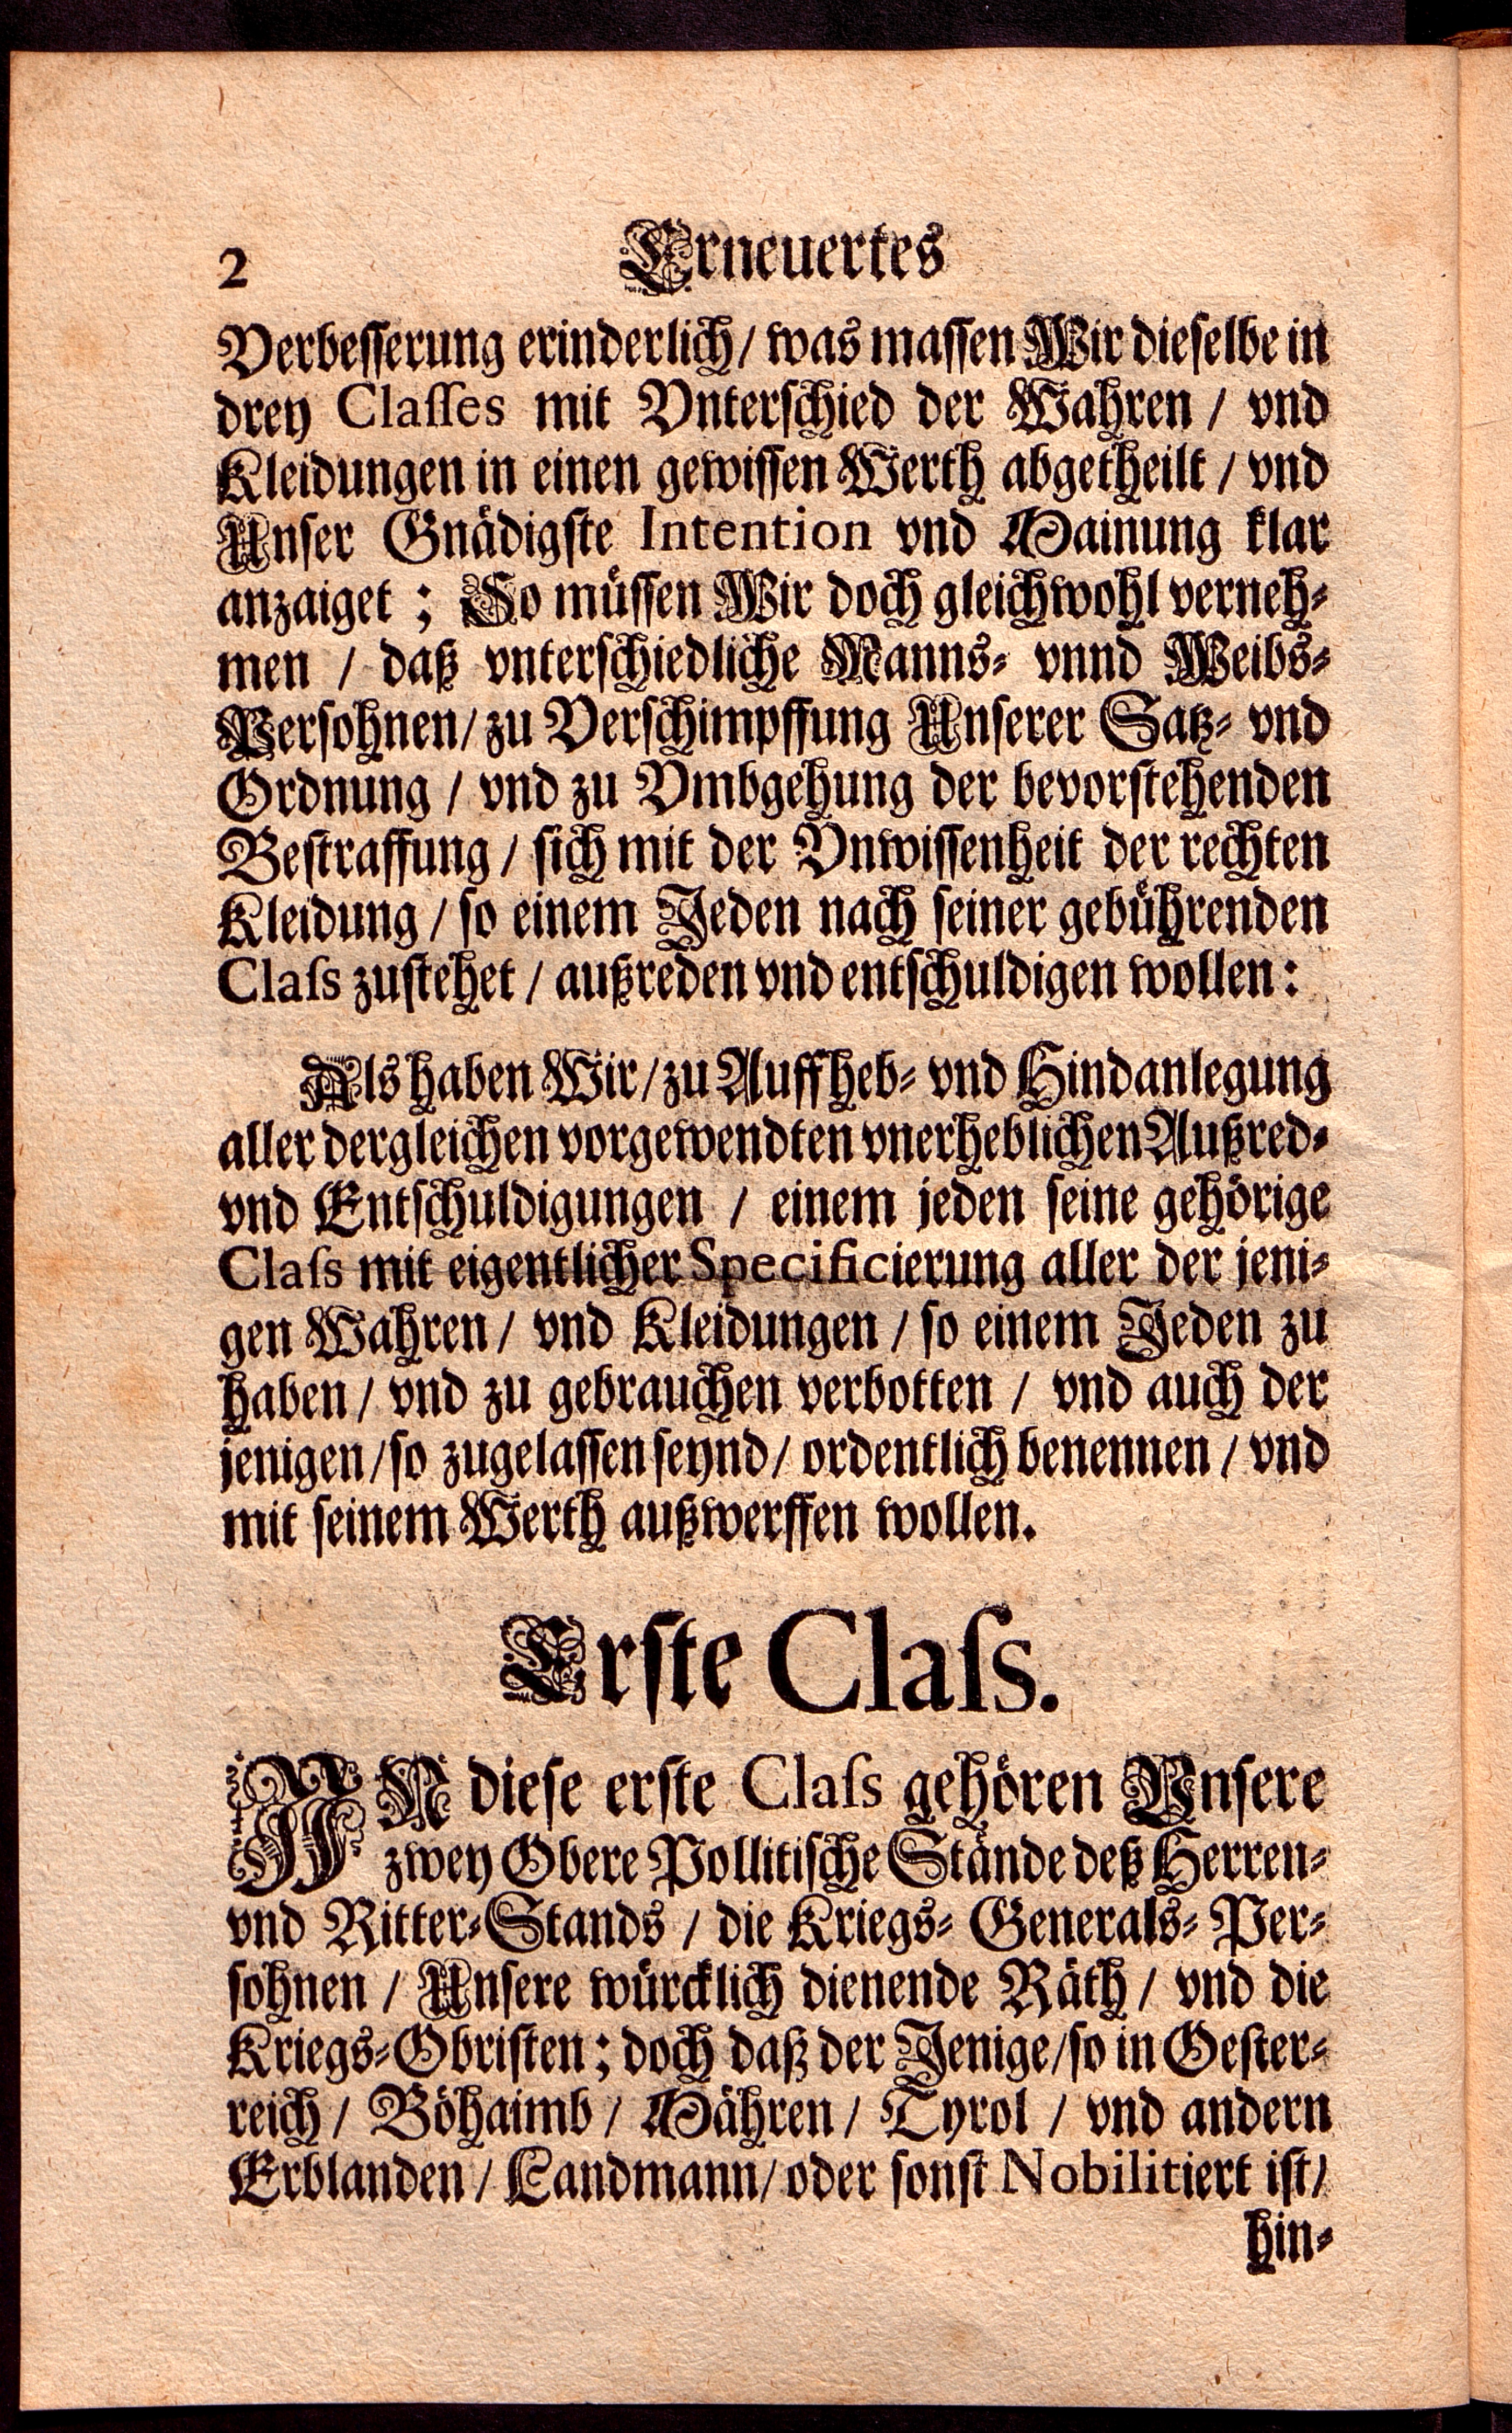 2 Erneuertes
Verbesserung erinderlich / was massen Wir dieselbe in
drey Classes mit Vnterschied der Wahren / vnd
Kleidungen in einen gewissen Werth abgetheilt / vnd
Unser Gnädigste Intention vnd Mainung klar
anzaiget ; So müssen Wir doch gleichwohl verneh-
men / daß vnterschiedliche Manns- vnnd Weibs-
Persohnen / zu Verschimpffung Unserer Satz- vnd
Ordnung / vnd zu Vmbgehung der bevorstehenden
Bestraffung / sich mit der Vnwissenheit der rechten
Kleidung / so einem Jeden nach seiner gebührenden
Class zustehet / außreden vnd entschuldigen wollen :
Als haben Wir / zu Auffheb- vnd Hindanlegung
aller dergleichen vorgewendten vnerheblichen Außred-
vnd Entschuldigungen / einem jeden seine gehörige
Class mit eigentlicher Specificierung aller der jeni-
gen Wahren / vnd Kleidungen / so einem Jeden zu
haben / vnd zu gebrauchen verbotten / vnd auch der
jenigen / so zugelassen seynd / ordentlich benennen / vnd
mit seinem Werth außwerffen wollen.
Erste Class.
IN diese erste Class gehören Vnsere
zwey Obere Pollitische Stände deß Herren-
vnd Ritter-Stands / die Kriegs- Generals- Per-
sohnen / Unsere würcklich dienende Räth / vnd die
Kriegs-Obristen ; doch daß der Jenige / so in Oester-
reich / Böhaimb / Mähren / Tyrol / vnd andern
Erblanden / Landmann / oder sonst Nobilitiert ist /
hin-